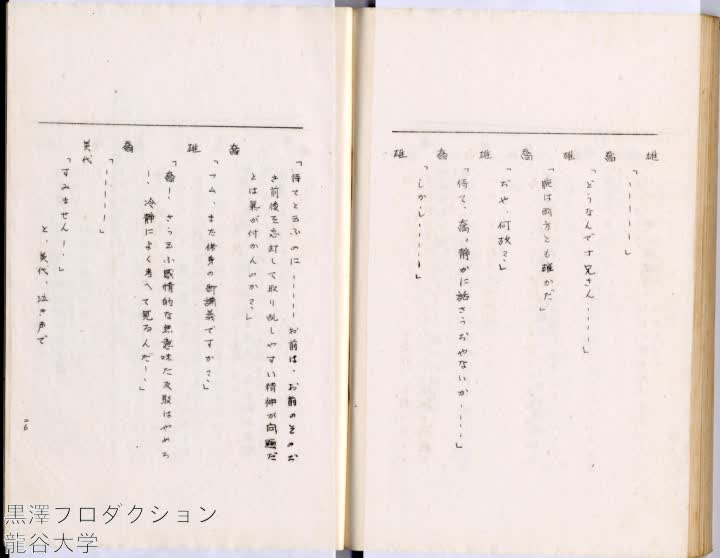 雄
「・・・・・」
喬
「どうなんです兄さん・・・・・」
雄
「腕は両方とも確かだ」
喬
「おや、何故？」
雄
「待て、喬。静かに話さうぢやないか・・・・」
喬
雄
「しかし・・・・・」
「待てと云ふのに・・・・・お前は、お前のそのだ
き前後を忘却して取り乱しやすい精神が問題だ
とは気が付かんのか？」
喬
「フム、また修身の御講義ですか？」
雄
「喬！さう云ふ感情的な無意味な反駁はやめろ
！冷静によく考へて見るんだ！」
喬
「・・・・・」
美代
「すみません！」
と、美代、泣き声で
26
黒澤プロダクション
龍谷大学